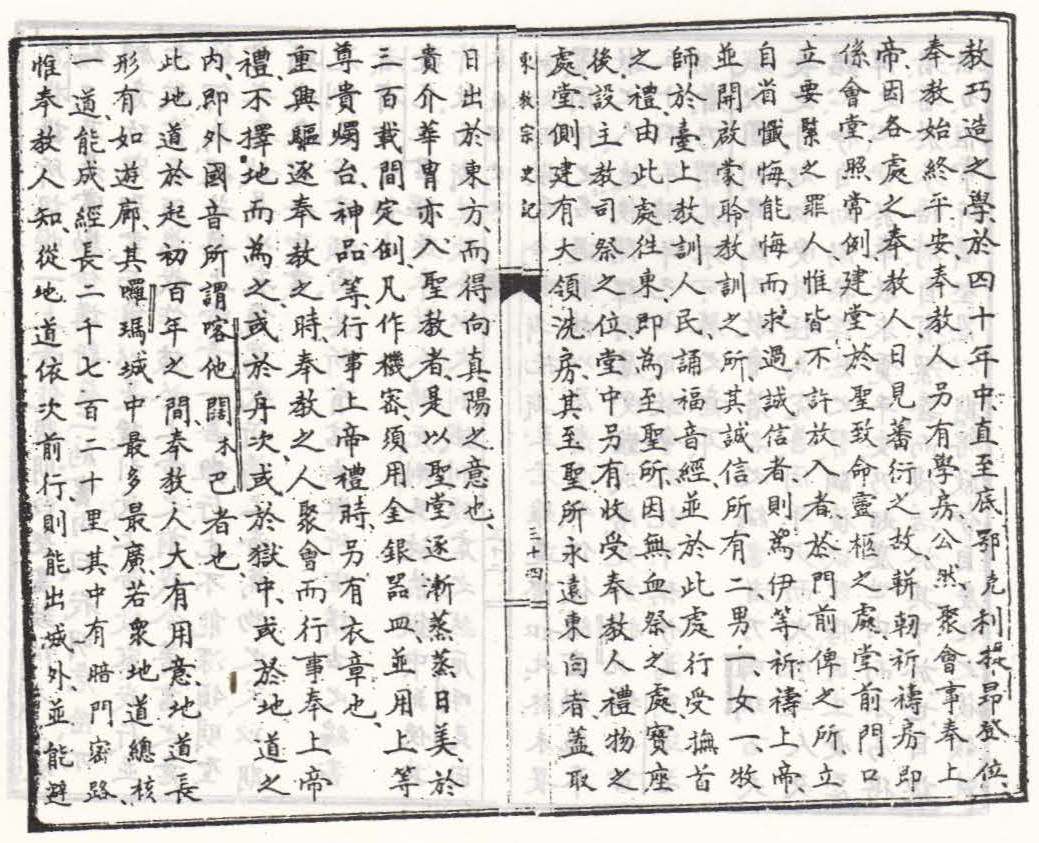 教巧造之學、於四十年中、直至底鄂克利提昂登位、
奉教始終平安、奉教人另有學房、公然聚會事奉上
帝、因各處之奉教人、日見蕃衍之故、斬朝祈禱房、即
係會堂、照常例、建堂於聖致命靈柩之處、堂前門口
立要緊之罪人、惟皆不許放入者、於門前俾之所、立
自省懺悔、能悔而求過誠信者、則為伊等祈禱上帝、
並開啟蒙聆教訓之所、其誠信所有二、男一、女一、牧
師於臺上教訓人民、誦福音經、並於此處行受撫首
之禮、由此處往東、即為至聖所、因無血祭之處、寶座
後、設主教司祭之位、堂中另有收受奉教人禮物之
處、堂側建有大領洗房、其至聖所永遠東向者、蓋取
東教宗史記
三十四
日出於東方、而得向真陽之意也、
貴介華冑亦入聖教者、是以聖堂逐漸蒸蒸日美、於
三百載間定例、凡作機密、須用金銀器皿、並用上等
尊貴燭台、神品等、行事上帝禮時、另有衣章也、
重興驅逐奉教之時、奉教之人聚會而行事奉上帝
禮、不擇地而為之、或於舟次、或於獄中、或於地道之
內、即外國音所謂喀他闊木巴者也、
此地道於起初百年之間奉教人大有用意、地道長
形有如遊廊、其囉瑪城中最多最廣、若衆地道總核
一道、能成經長二千七百二十里、其中有暗門密路、
惟奉教人知、從地道依次前行、則能出城外、並能避